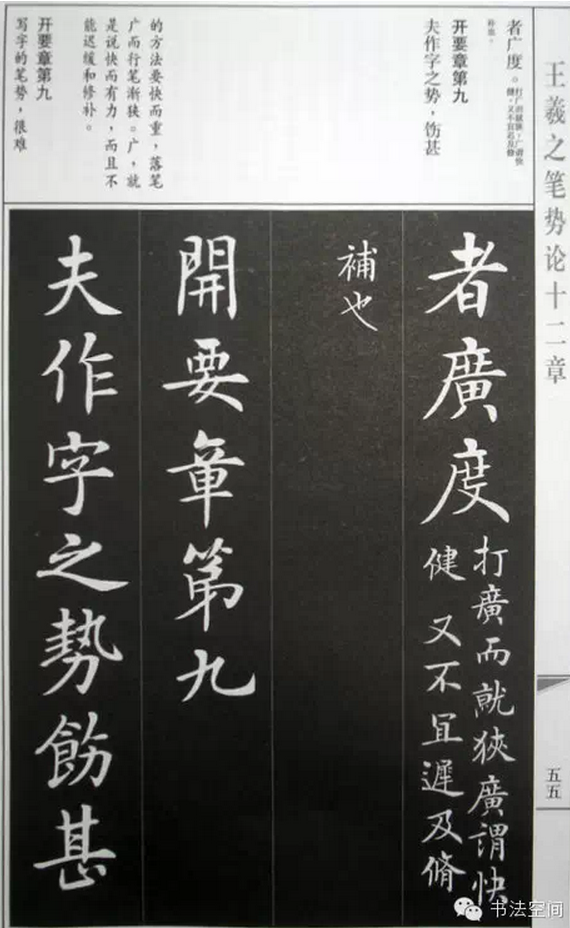 王羲之笔势论十二章
五五
者广度。打广而就狭,广谓快
健,又不宜迟及修
补也。
开要章第九
夫作字之势,饬甚
的方法要快而重,落笔
广而行笔渐狭。广,就
是说快而有力,而且不
能迟缓和修补。
开要章第九
写字的笔势,很难
者廣度打廣而就狹廣謂快
健又不宜遲及脩
補也
開要章第九
夫作字之勢飭甚
书法空间